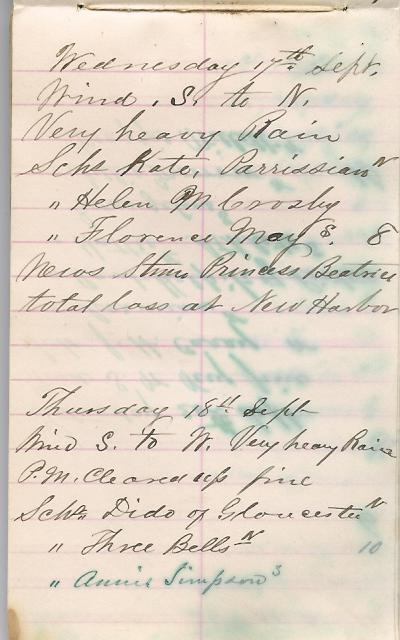 Wednesday 17th Sept.
Wind . S. to N.
Very heavy Rain
Schs Kate, Parrissian N
" Helen M Crosby
" Florence May S. 8
News Stmr Princess Beatrice
total loss at New Harbor
Thursday 18th Sept
Wind S. to W. Very heavy Rain
P.M. Cleared up fine
Schs Dido of Gloucester N
" Three Bells N 10
" Annie Simpson S